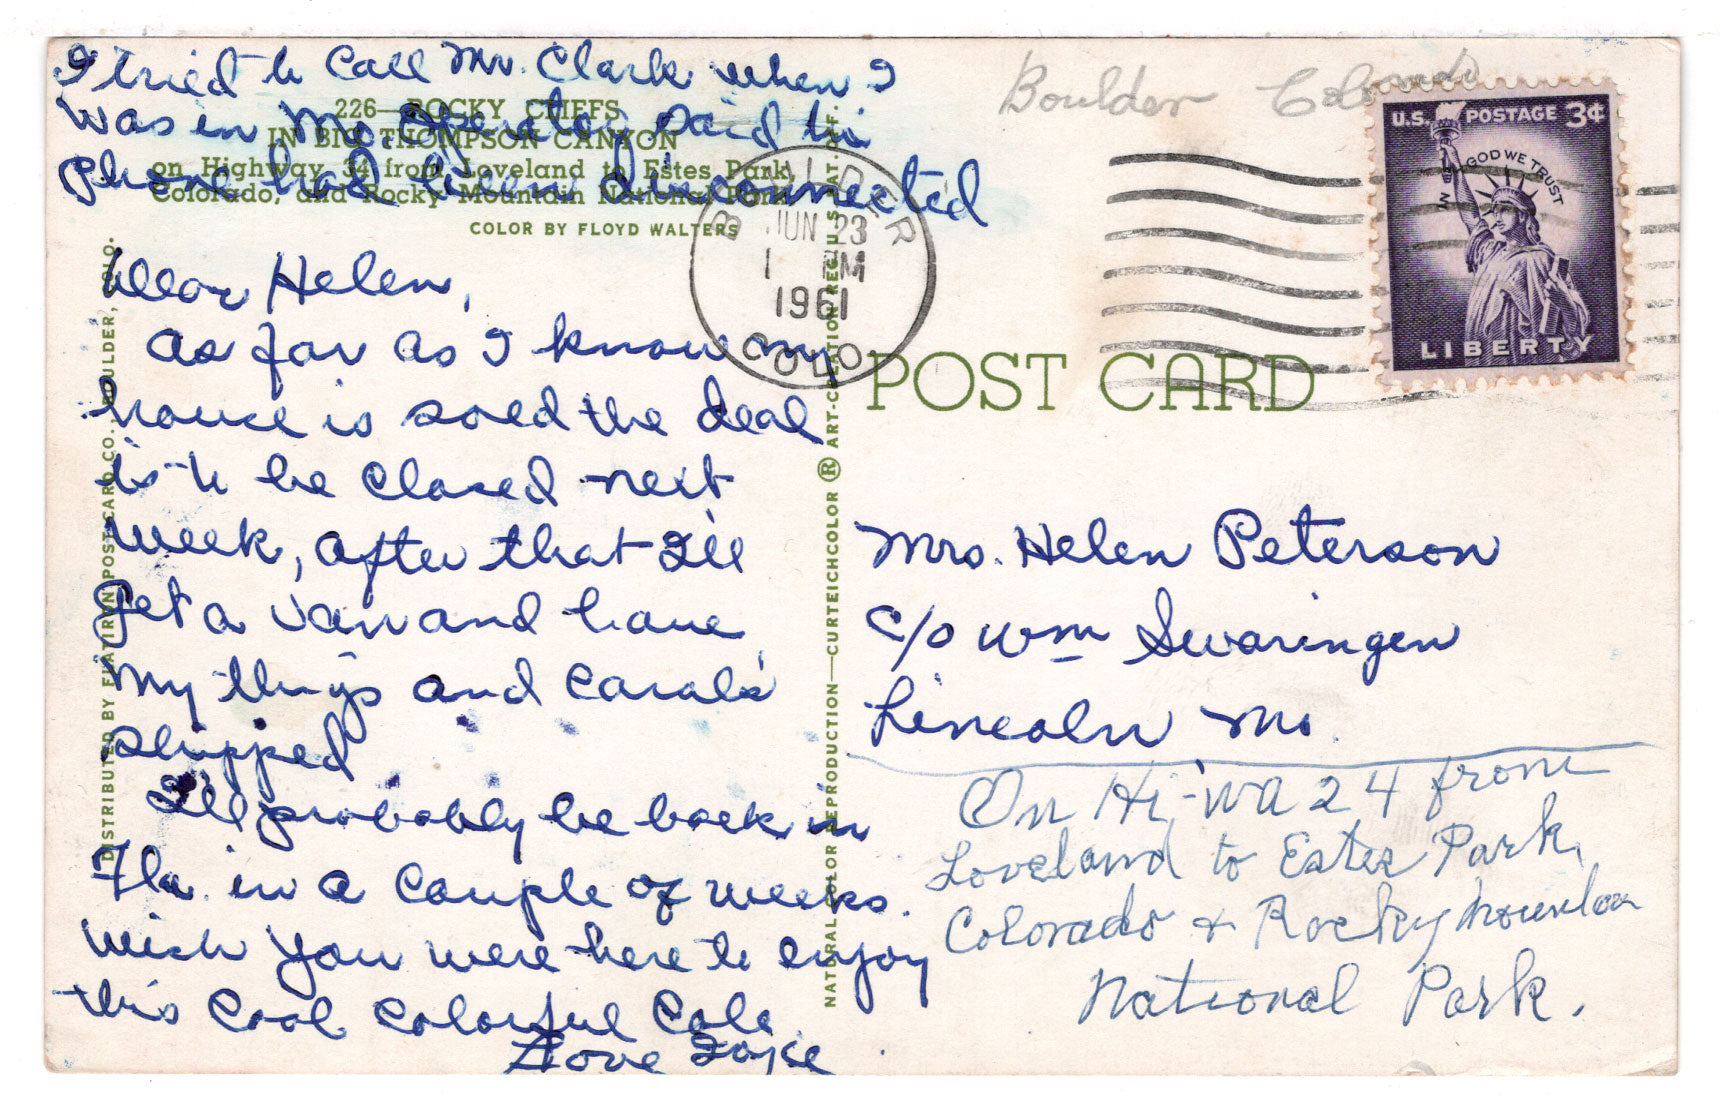 I tried to Call Mr. Clark when I
was in Mo. Operator said his
phone had been disconnected
226—ROCKY CLIFFS
IN BIG THOMPSON CANYON
on Highway 34 from Loveland to Estes Park,
Colorado, and Rocky Mountain National Park
COLOR BY FLOYD WALTERS
Dear Helen,
as far as I know my
house is soled the deal
is to be Closed next
week, after that I'll
get a van and have
my things and Carol's
shipped
I'll probably be back in
Fla. in a Couple of weeks.
Wish you were here to enjoy
this Cool Colorful Colo.
Love
DISTRIBUTED BY FLATIRON POST CARD CO., BOULDER, COLO.
NATURAL COLOR REPRODUCTION—CURTEICHCOLOR ® ART-CREATION REG. U.S. PAT. OFF.
Boulder Colorado
BOULDER
JUN 23
1 PM
1961
COLO
U.S. POSTAGE 3¢
IN GOD WE TRUST
LIBERTY
POST CARD
Mrs. Helen Peterson
c/o Wm Swaringen
Lincoln Mo.
On Hi-wa 24 from
Loveland to Estes Park,
Colorado & Rocky Mountain
National Park.